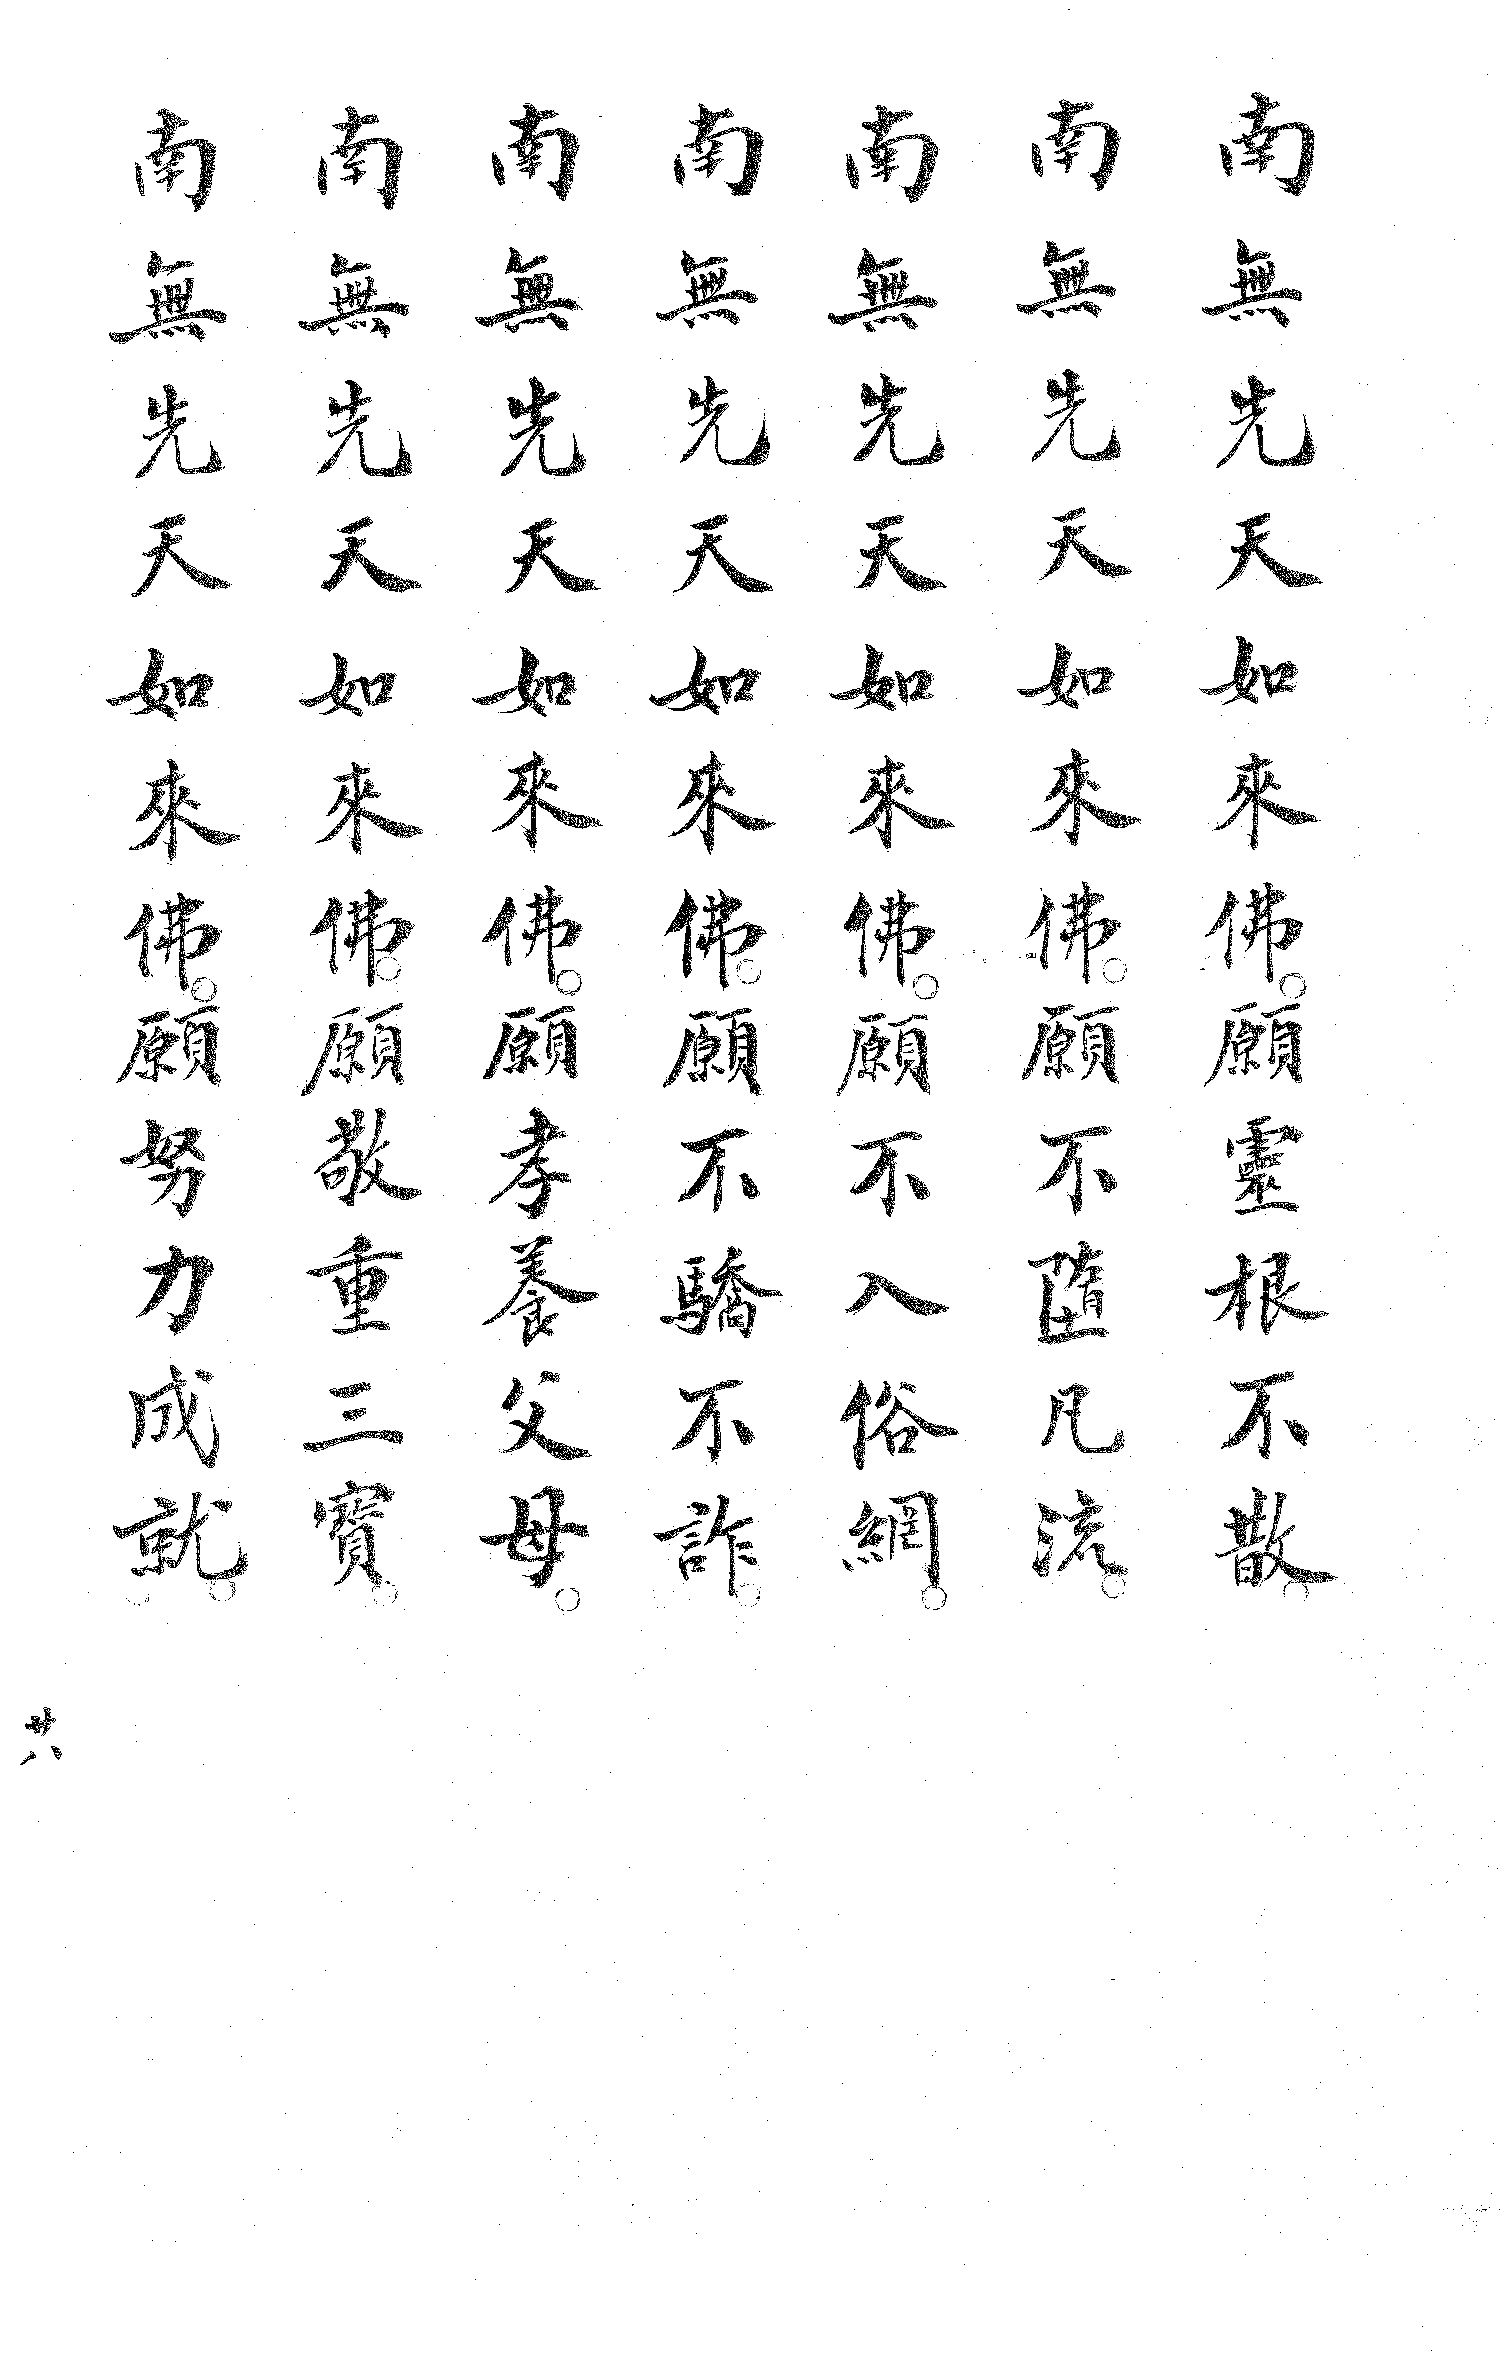 南無先天如來佛。願靈根不散。
南無先天如來佛。願不墮凡流。
南無先天如來佛。願不入俗網。
南無先天如來佛。願不驕不詐。
南無先天如來佛。願孝養父母。
南無先天如來佛。願敬重三寶。
南無先天如來佛。願努力成就。
廿八